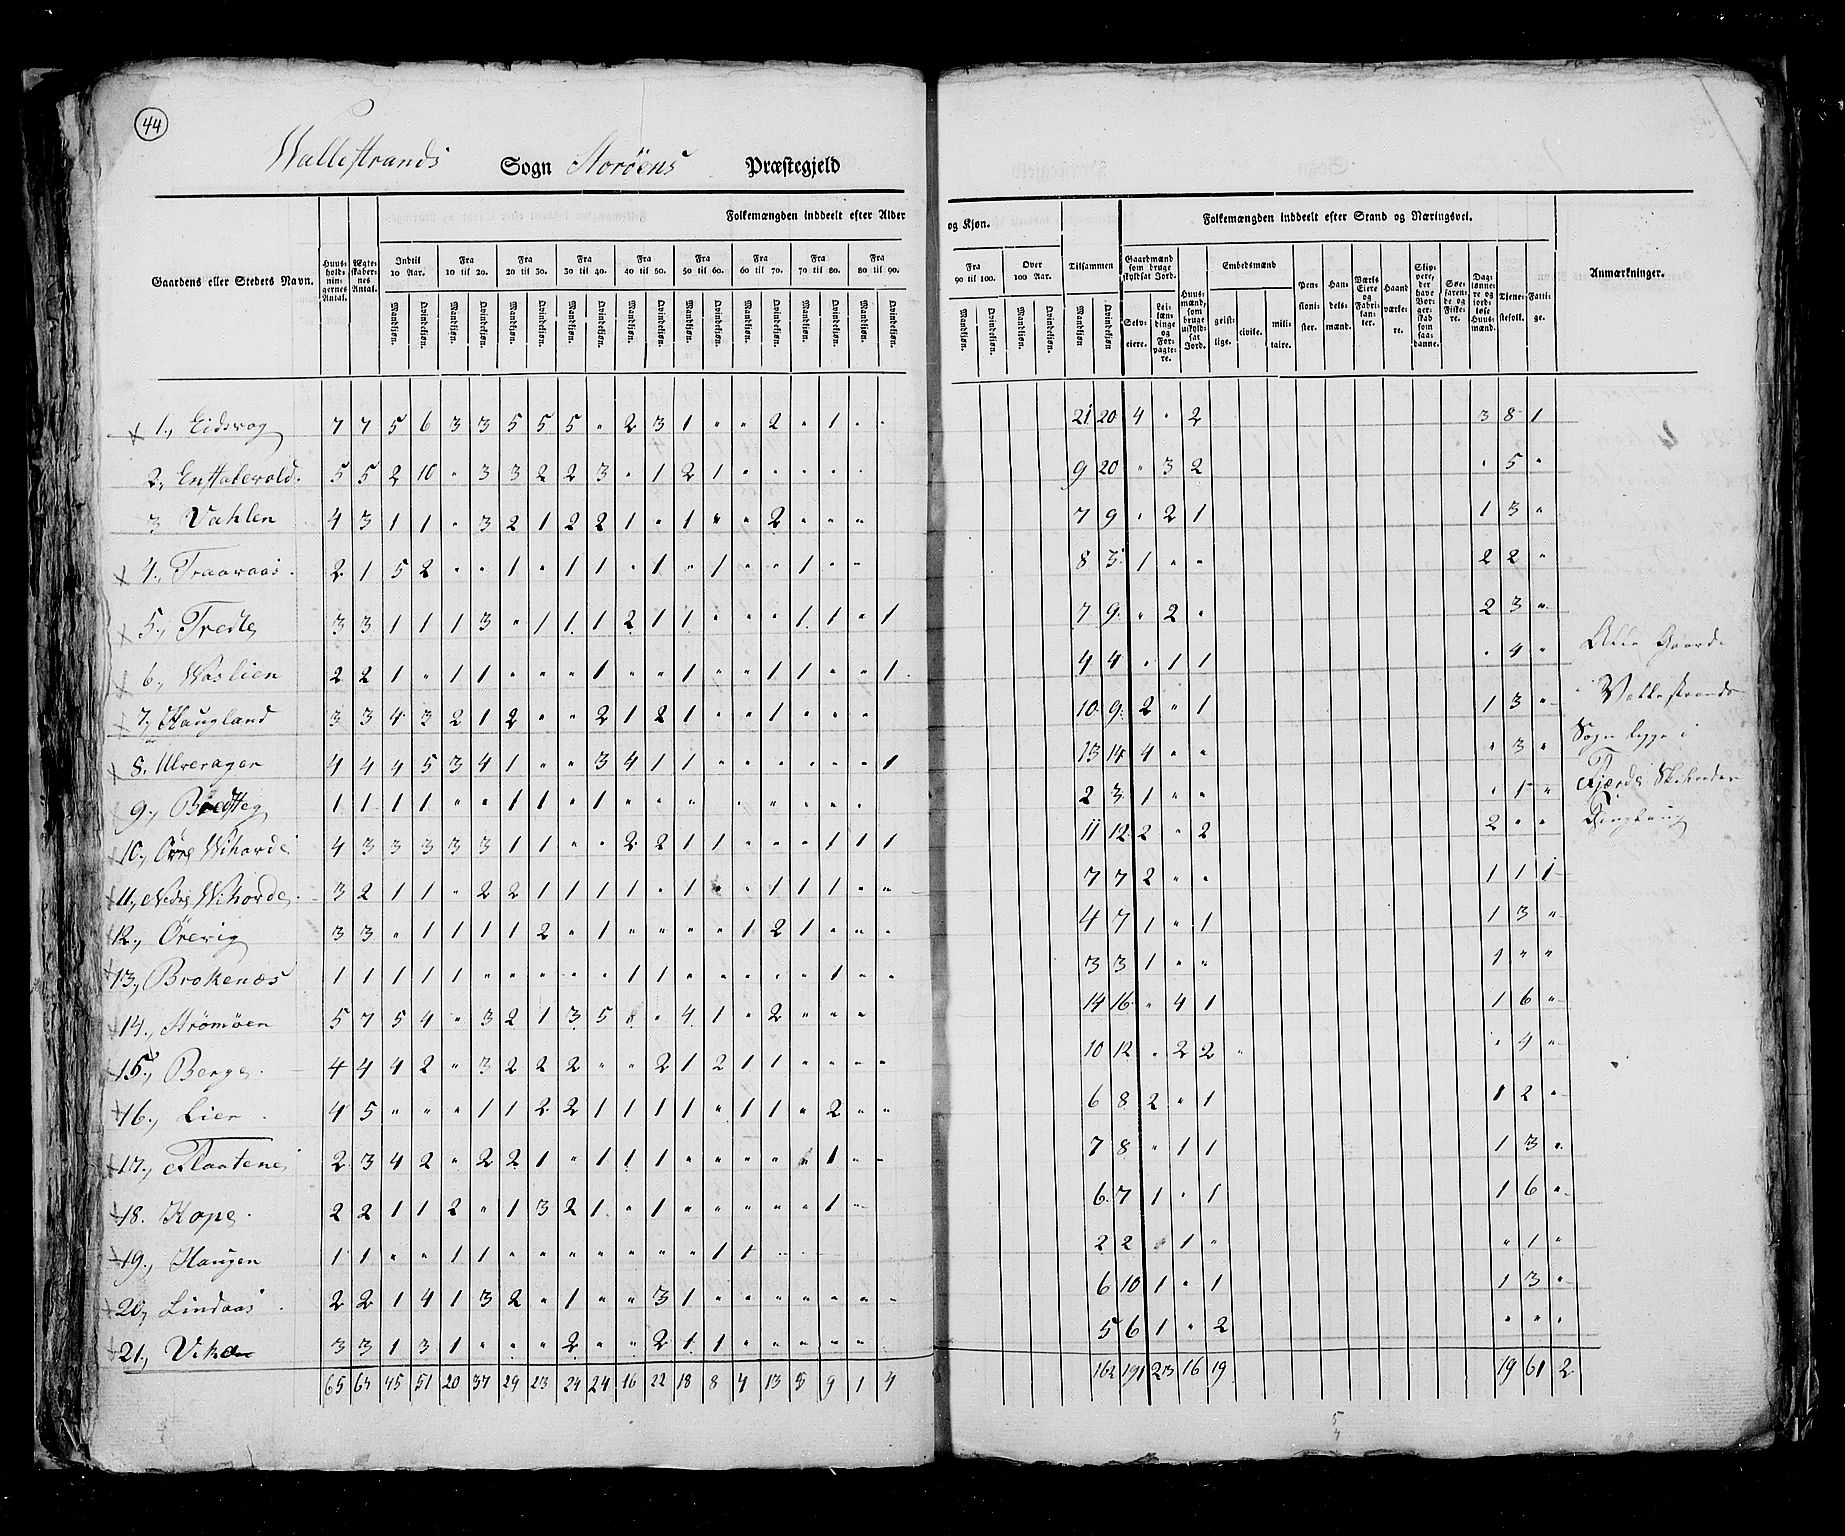 44
Wallestrands Sogn Storöens Præstegjeld
Folkemængden inddeelt efter Alder og Kjøn. Folkemængden inddeelt efter Stand og Næringsvei.
Gaardens eller Stedets Navn. Huus-hold-nin-gernes Antal. Ægte-skaber-nes Antal. Indtil 10 Aar. Fra 10 til 20. Fra 20 til 30. Fra 30 til 40. Fra 40 til 50. Fra 50 til 60. Fra 60 til 70. Fra 70 til 80. Fra 80 til 90. Fra 90 til 100. Over 100 Aar. Tilsammen Gaardmænd som bruge skyldsat Jord. Huus-mænd, som bruge uskyld-sat Jord. Embedsmænd Pen-sioni-ster. Han-dels-mænd. Værks Eiere og Fabri-kan-ter. Haand værke-re. Skip-pere, der have Bor-ger-skab som saa-danne. Søe-faren-de og Fiske-re. Dag-lønne-re og jord-løse Huus-mænd. Tjene-stefolk. Fatti-ge. Anmærkninger.
Mandkjøn. Qvindekjøn. Mandkjøn. Qvindekjøn. Mandkjøn. Qvindekjøn. Mandkjøn. Qvindekjøn. Mandkjøn. Qvindekjøn. Mandkjøn. Qvindekjøn. Mandkjøn. Qvindekjøn. Mandkjøn. Qvindekjøn. Mandkjøn. Qvindekjøn. Mandkjøn. Qvindekjøn. Mandkjøn. Qvindekjøn. Mandkjøn Qvindekjøn Selv-eiere. Lei-læn-dinge og For-pagte-re. geist-lige. civile. mili-taire.
1., Eidsvog 7 7 5 6 3 3 5 5 5 " 2 3 1 " " 2 " 1 " " 21 20 4 " 2 3 8 1
2., 5 5 2 10 " 3 3 2 2 3 " 1 2 1 " " " " " " 9 20 " 3 2 " 5 "
3 Vahlen 4 3 1 1 " 3 2 1 2 2 1 " 1 " " 2 " " " 7 9 " 2 1 1 3 "
4., Traavaas 2 1 5 2 " " 1 " 1 1 " 1 " 1 " " 1 " " 8 5 1 " " 2 2 "
5., Tredte 3 3 1 1 1 3 " 1 1 1 2 1 1 " " " 1 1 " 1 7 9 " 2 " 2 3 "
6., Waslien 2 2 1 " 1 1 " " " 1 " " 1 " " 1 1 " " 1 4 4 " 1 1 " 4 "
7., Haugland 3 3 4 3 2 1 2 " " 2 1 2 1 " " 1 " " " 10 9 2 " 1 1 3 "
8. Ulveragen 4 4 4 5 3 4 1 " " 3 4 1 1 " " " " " " 1 13 14 4 " " " 3 "
9., 1 1 1 1 " " 1 1 " 1 " " " " " " " " 2 3 1 " " " 1 "
10., Övre Wikorde 4 3 3 3 3 3 1 1 " " 2 2 1 1 " " " 1 1 1 11 12 2 " 2 2 " "
11., Nedre Wikorde 3 2 1 1 " 2 2 1 1 1 1 " 1 " " 1 1 1 " " 7 7 2 " " 1 1 1
12., Örevig 3 3 " 1 1 1 1 2 " 1 " " " " 1 2 1 " " " 4 7 1 " 1 1 3 "
13., Brokenæs 1 1 1 1 1 " " " " " 1 1 " " " " " 1 " " 3 3 1 " " 1 " "
14., Strömöen 5 7 5 4 " 3 2 1 3 5 " 4 1 " 2 " " " 14 16 " 4 1 1 6 "
15., Berge 4 4 4 2 " 3 2 2 2 " " 2 1 2 1 1 " " " " 10 12 " 2 2 " " 4 "
16., Lier 4 5 " " " 1 1 2 2 1 1 1 1 " 1 1 " 2 " " 6 8 2 " 1 1 2 "
17., Flaatene 2 3 4 2 " 2 2 1 " 1 1 1 " " " " 1 " " 7 8 " 1 1 1 3 "
18. Hope 2 2 1 1 2 " 1 3 2 1 " 1 " " " " " 1 " 6 7 1 " 1 1 6 "
19., Haugen 1 1 " " 1 1 " " " " " " " 1 1 " 2 2 1 " " 1 "
20., Lindaas 2 2 1 4 1 3 2 " 1 " " 3 1 " " " " " " " 6 10 1 " 1 1 3 "
21., 3 3 1 3 1 " " " 2 " " 2 1 1 " " " " " 5 6 1 " 2 " " "
65 64 45 51 20 37 29 23 24 24 16 22 18 8 4 13 5 9 1 4 162 191 23 16 19 19 61 2
Alle Gaarde
i Vallestrands
Sogn ligge i
Fjærds Skibreder
Tinglaug
5
4